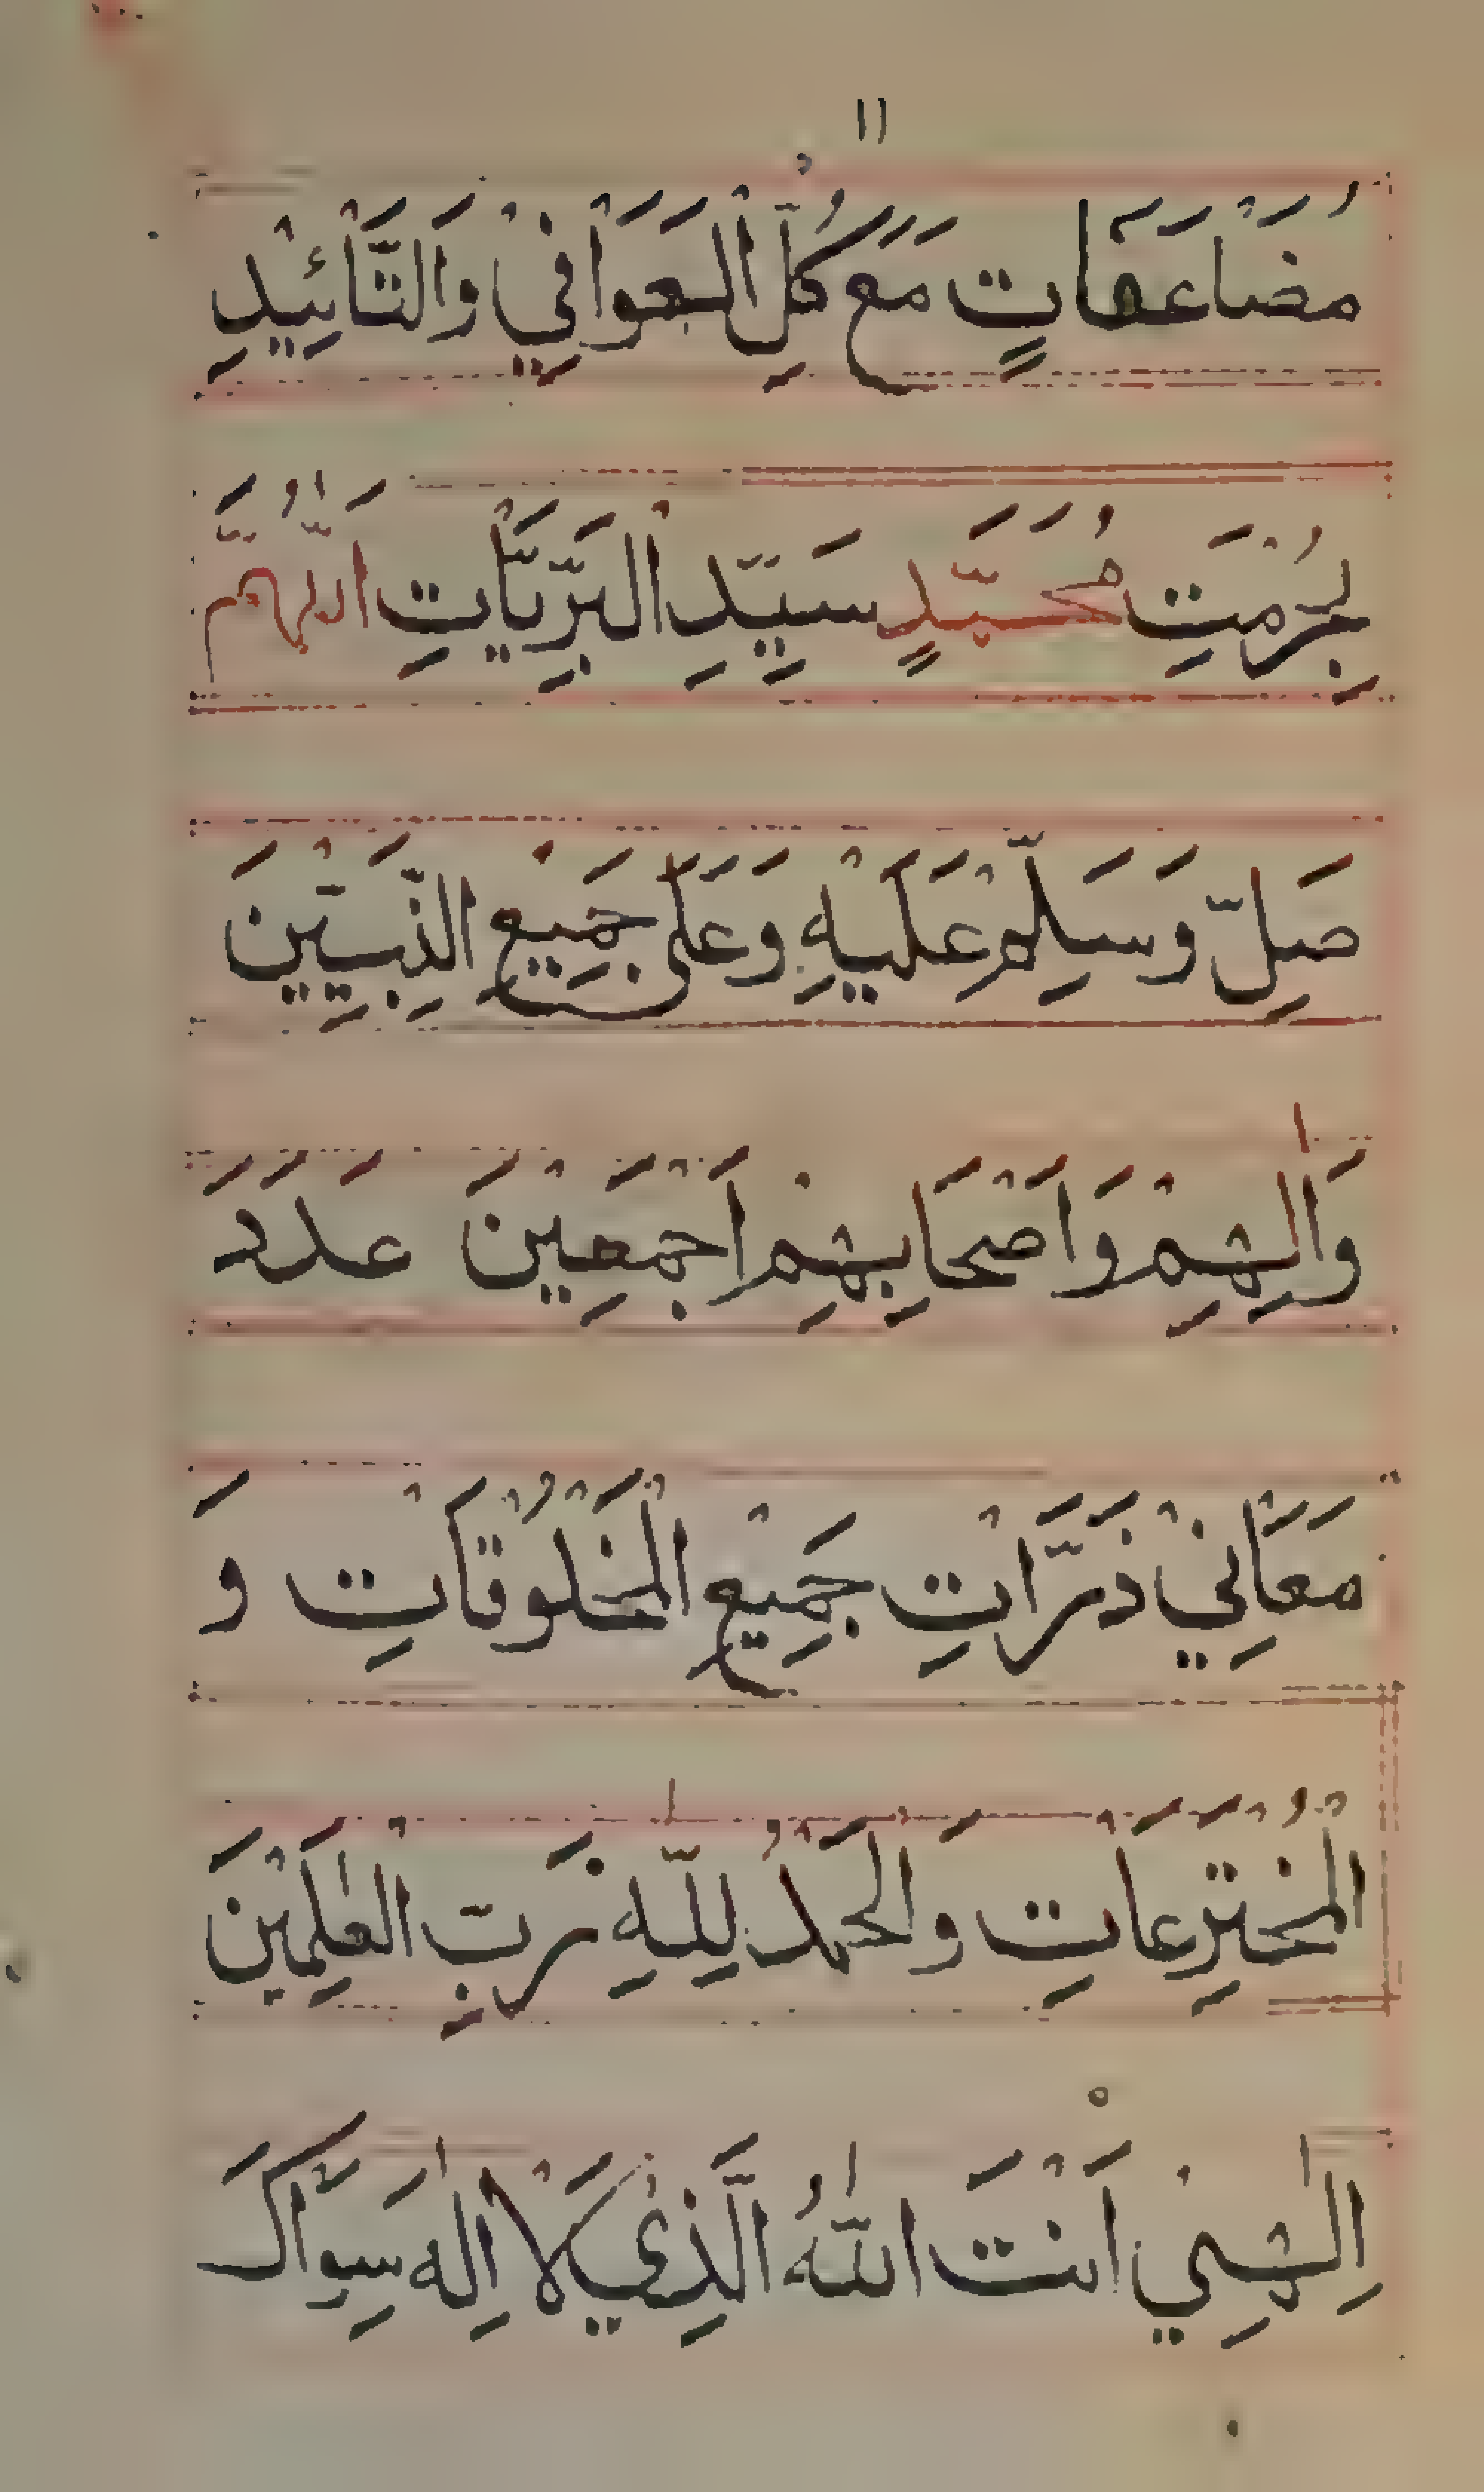 ١١
مُضَاعَفَاتٍ مَعَ كُلِّ الْعَوَافِيْ وَالتَّائِيْدِ
بِحُرْمَتِ مُحَمَّدٍ سَيِّدِ الْبَرِيَّاتِ اَللّٰهُمَّ
صَلِّ وَسَلِّمْ عَلَيْهِ وَعَلٰى جَمِيْعِ النَّبِيِّيْنَ
وَاٰلِهِمْ وَاَصْحَابِهِمْ اَجْمَعِيْنَ عَدَدَ
مَعَانِيْ ذَرَّاتِ جَمِيْعِ الْمَخْلُوْقَاتِ وَ
الْمُخْتَرِعَاتِ وَالْحَمْدُ لِلّٰهِ رَبِّ الْعٰلَمِيْنَ
اِلٰهِيْ اَنْتَ اللّٰهُ الَّذِيْ لَا اِلٰهَ سِوَاكَ